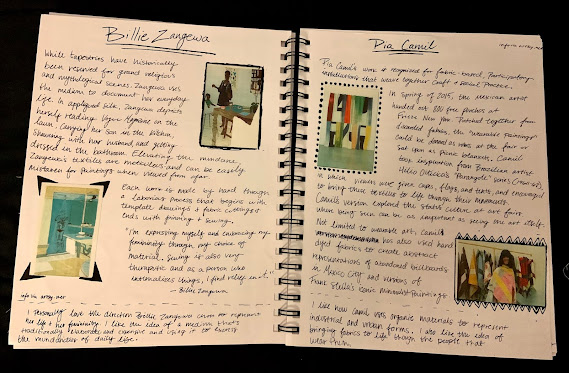 Billie Zangewa
While tapestries have historically
been reserved for grand religious
and mythological scenes, Zangewa uses
the medium to document her everyday
life. In appliqued silk, Zangewa depicts
herself reading Vogue Magazine on the
lawn, carrying her son in the kitchen,
showering with her husband and getting
dressed in the bathroom. Elevating the mundane,
Zangewa's textiles are meticulous and can be easily
mistaken for paintings when viewed from afar.
Each work is made by hand through
a laborious process that begins with
template drawings & fabric cuttings &
ends with pinning & sewing.
"I'm expressing myself and embracing my
femininity through my choice of
material. Sewing is also very
therapeutic and as a person who
internalizes things, I find relief in it."
- Billie Zangewa
info via artsy.net
I personally love the direction Billie Zangewa chose to represent
her life & her femininity. I like the idea of a medium that's
traditionally elaborate and expensive and using it to
the mundanities of daily life.
Pia Camil
info via artsy.net
Pia Camil's work is recognized for fabric-based, participatory
installations that weave together craft & social practice.
In spring of 2015, the Mexican artist
handed out 800 free ponchos at
Frieze New York. Patched together from
discarded fabrics, the "wearable paintings"
could be donned as robes at the fair or
sat upon as picnic blankets. Camil
took inspiration from Brazilian artist
Hélio Oiticica's "Parangolé" series
in which viewers were given capes, flags, and tents, and encouraged
to bring these textiles to life through their movements.
Camil's version explored the status culture at art fairs
where being seen can be as important as seeing the art itself.
Not limited to wearable art, Camil
has also used hand
dyed fabrics to create abstract
representations of abandoned billboards
in Mexico City and versions of
Frank Stella's iconic minimalist paintings
I like how Camil uses organic materials to represent
industrial and urban forms. I also like the idea of
bringing fabrics to life through the people that
wear them.